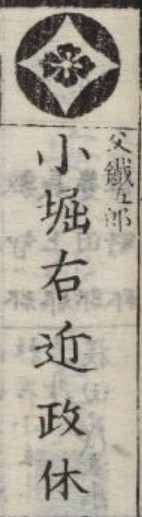 父鐵五郎
小堀右近政休